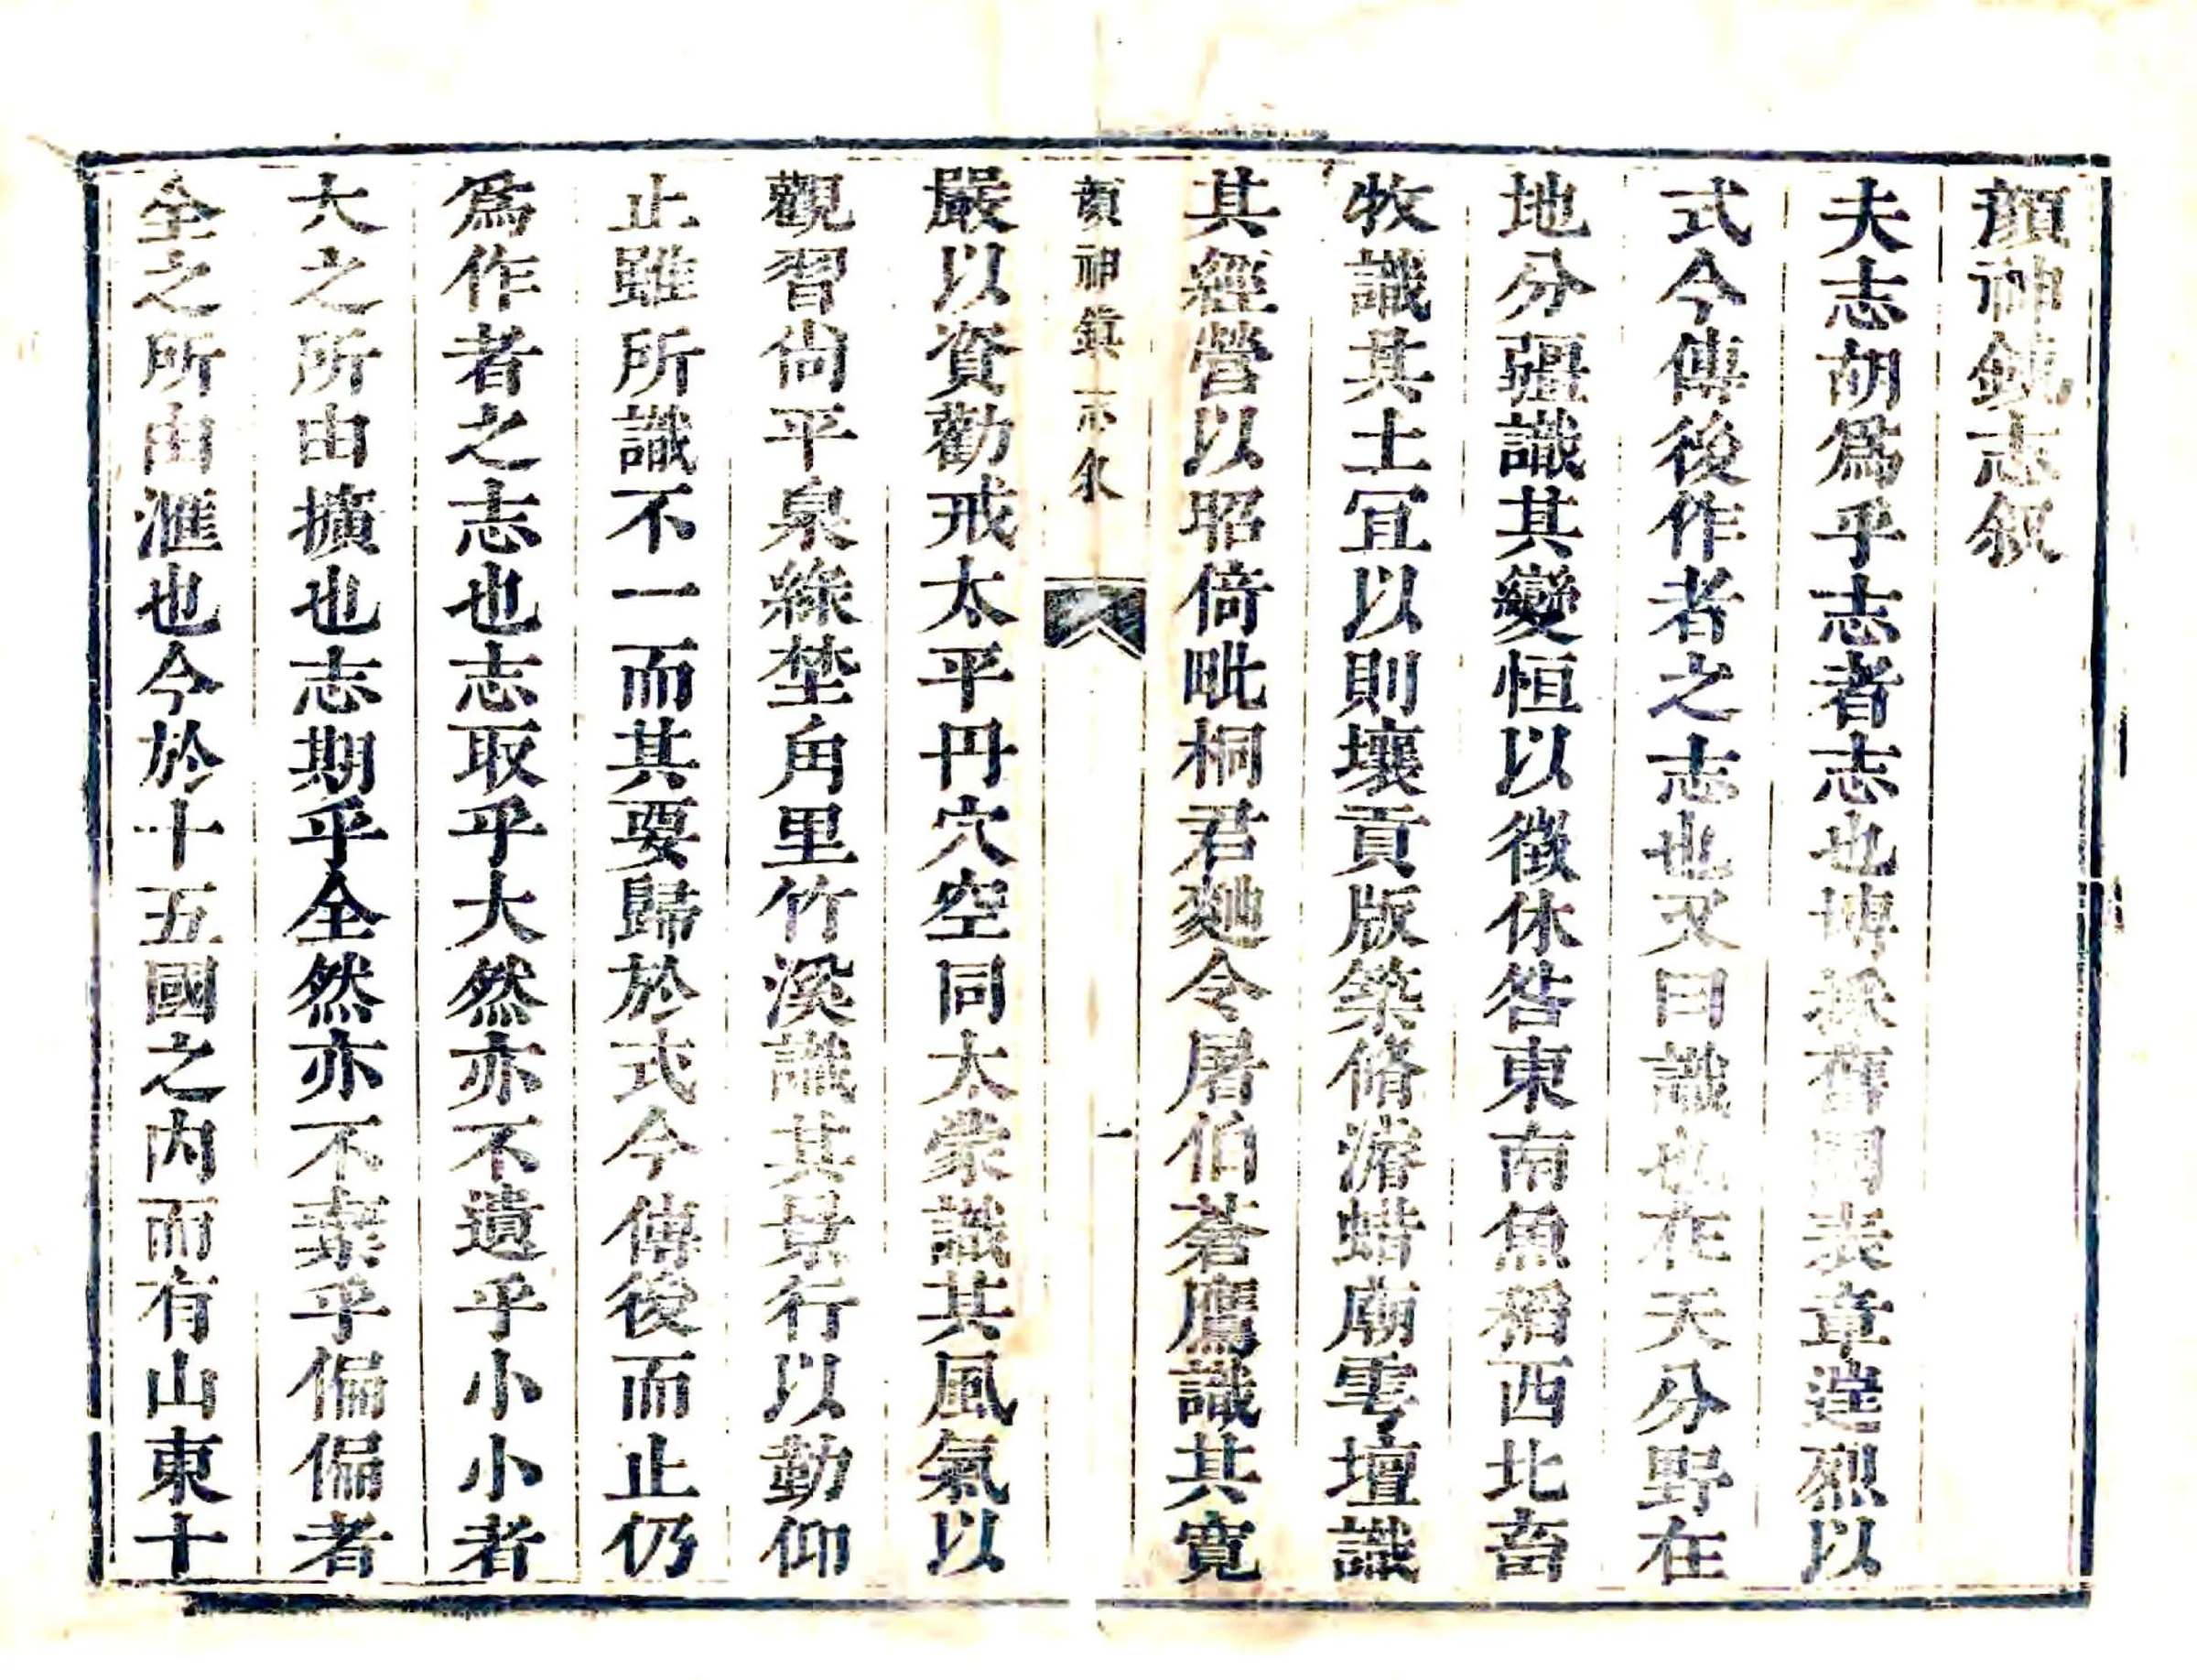 顏神鎮志叙
夫志胡爲乎志者志也博採舊聞表章逹烈以
式今傳後作者之志也又曰識也在天分野在
地分疆識其變恒以徵休咎東南魚稻西北畜
牧識其土宜以則壤貢版築脩濬蜡廟雩壇識
其經營以昭倚毗桐君麹令屠伯蒼鷹識其寬
顏神鎮志
一
嚴以資勸戒太平丹穴空同太蒙識其風氣以
觀習尙平泉綠埜角里竹溪識其景行以勤仰
止雖所識不一而其要歸於式今傳後而止仍
爲作者之志也志取乎大然亦不遺乎小小者
大之所由擴也志期乎全然亦不棄乎偏偏者
全之所由滙也今於十五國之內而有山東十